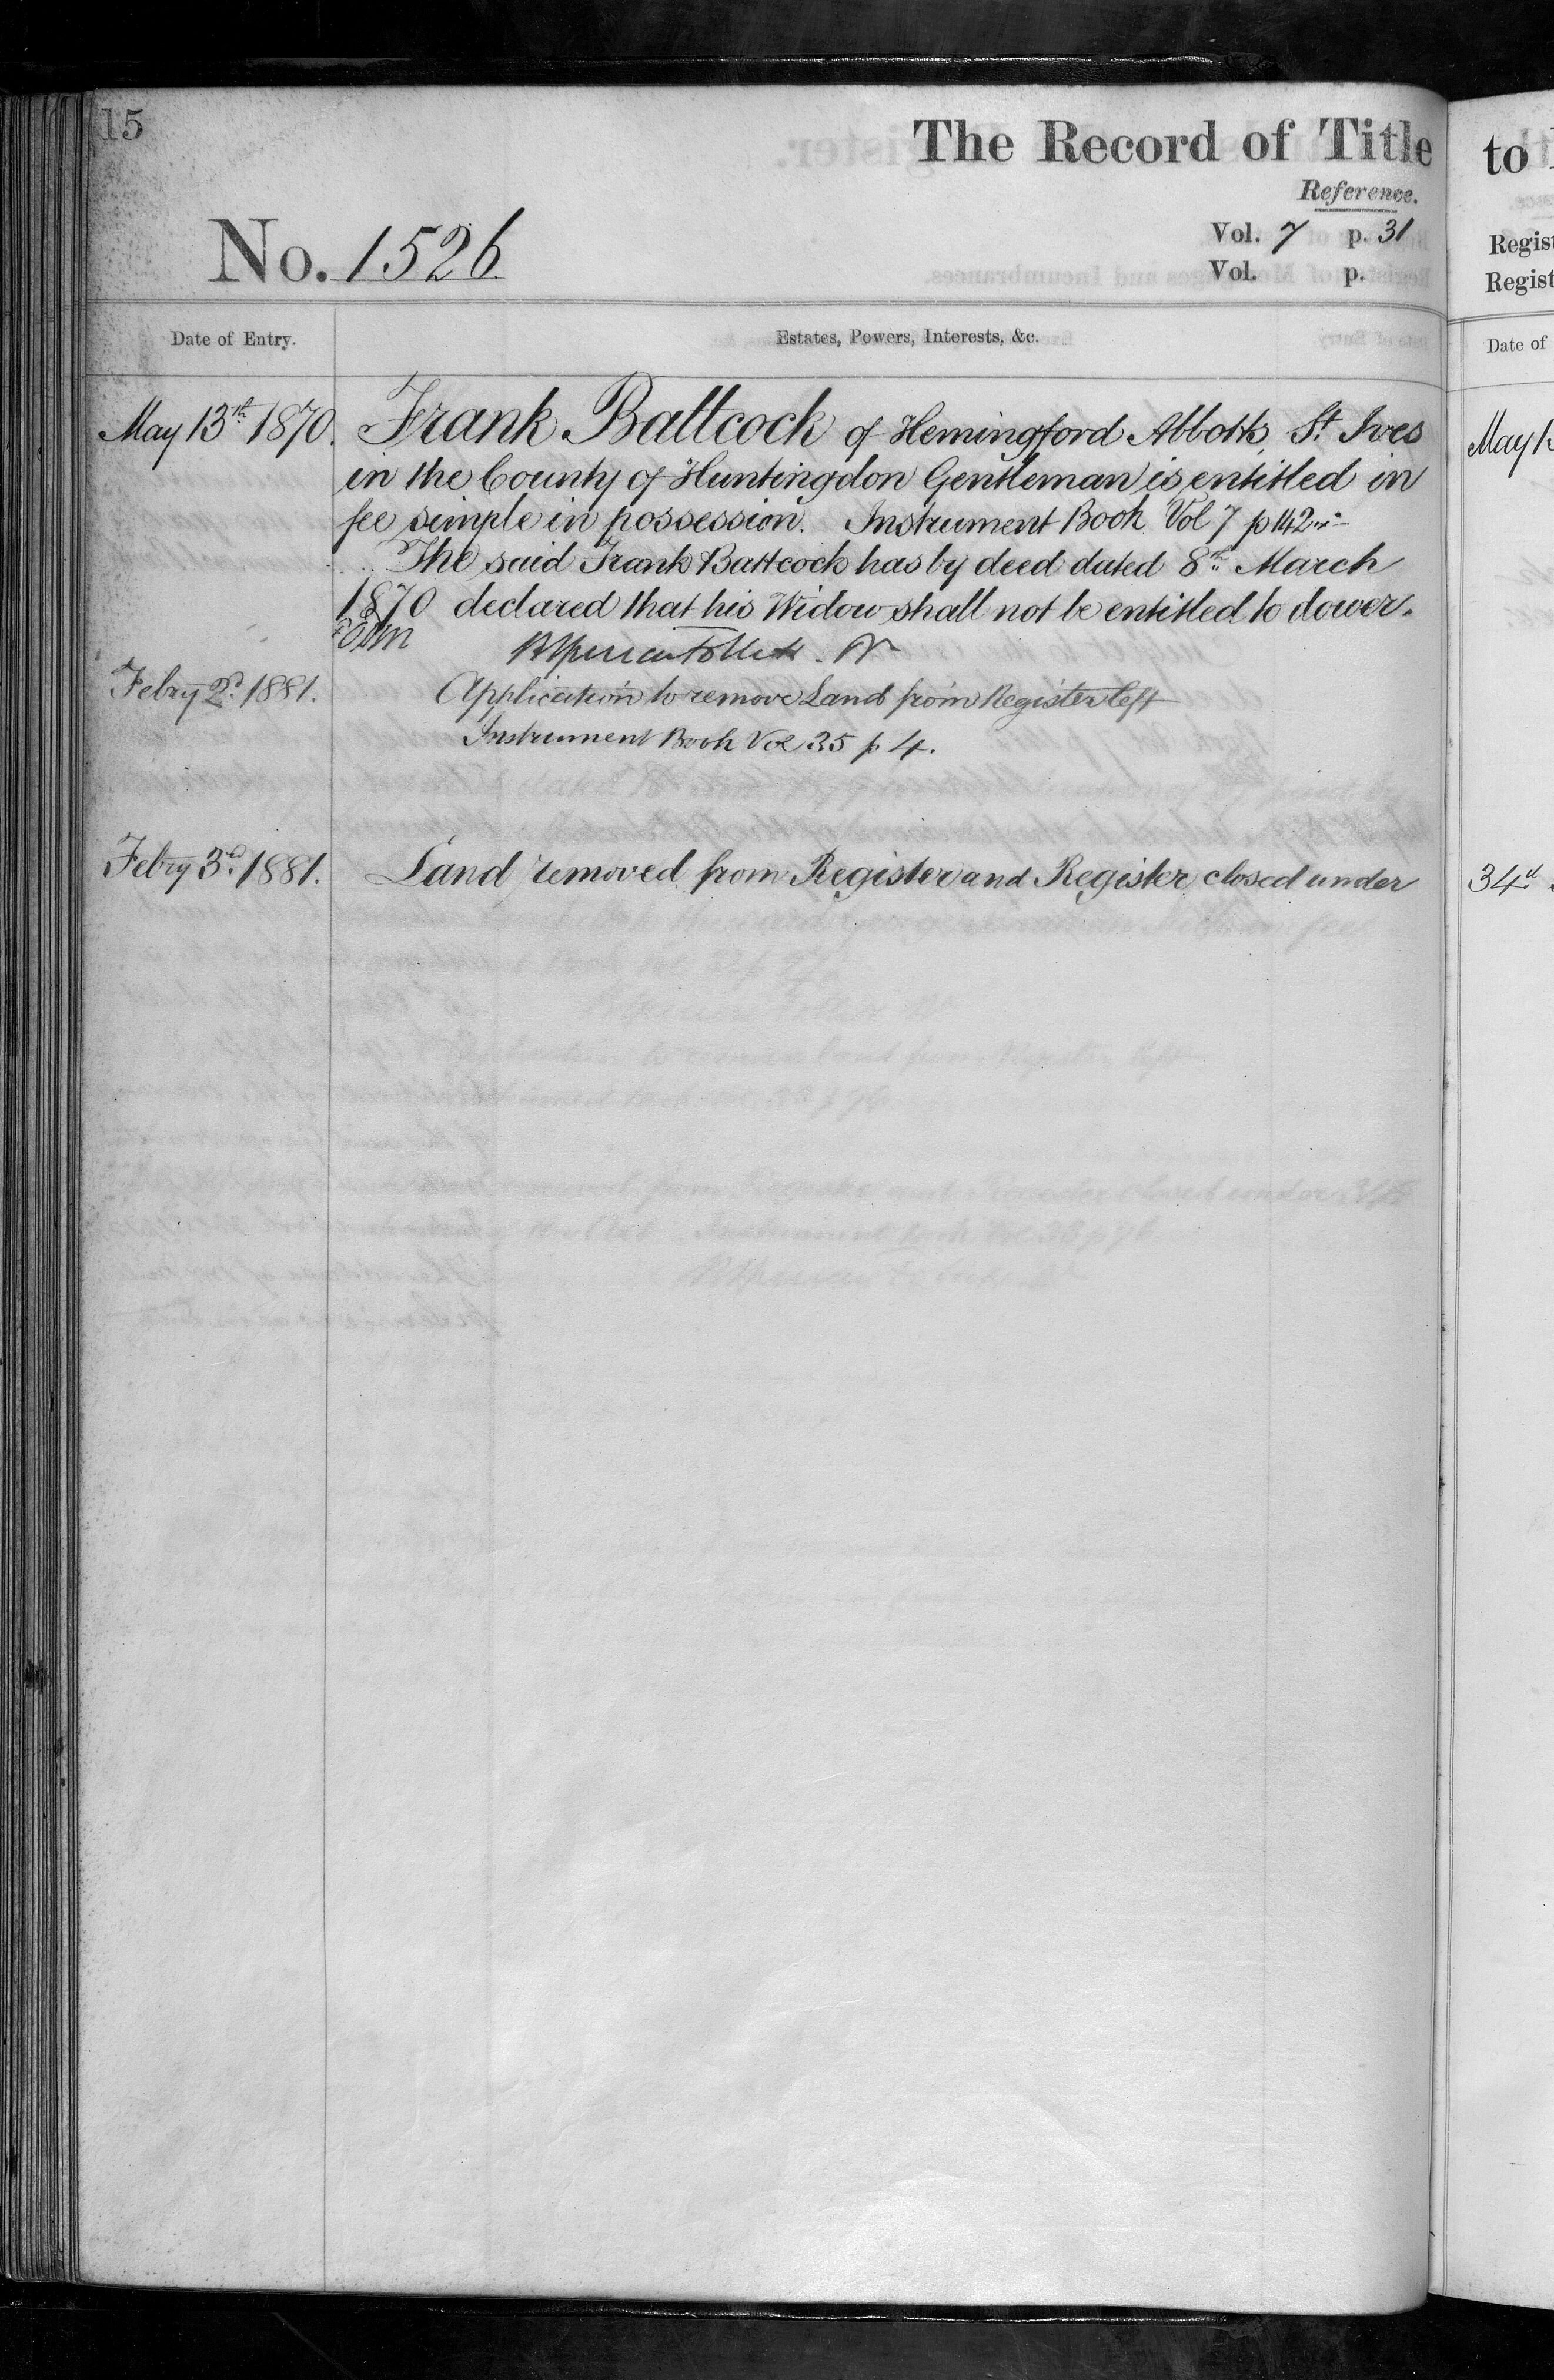 15
The Record of Title
Reference.
No. 1526
Vol. 7 p. 31
Vol. p.
Date of Entry.
Estates, Powers, Interests, &c.
May 13th 1870. Frank Battcock of Hemingford Abbotts, St. Ives
in the County of Huntingdon Gentleman is entitled in
fee simple in possession. Instrument Book Vol 7 p 142
The said Frank Battcock has by deed dated 8th March
1870 declared that his Widow shall not be entitled to dower.
Febry 2d. 1881. Application to remove Land from Register left
Instrument Book Vol 35 p 4.
Febry 3d. 1881. Land removed from Register and Register closed under
to
Regist
Regist
Date of
May 1
34